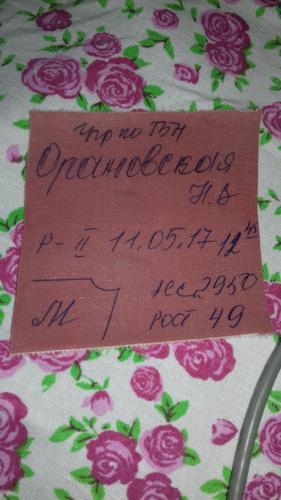 гр по ТБН
Орановская
Н.А
Р-II 11.05.17 12 45
М
жс 2950
рост 49